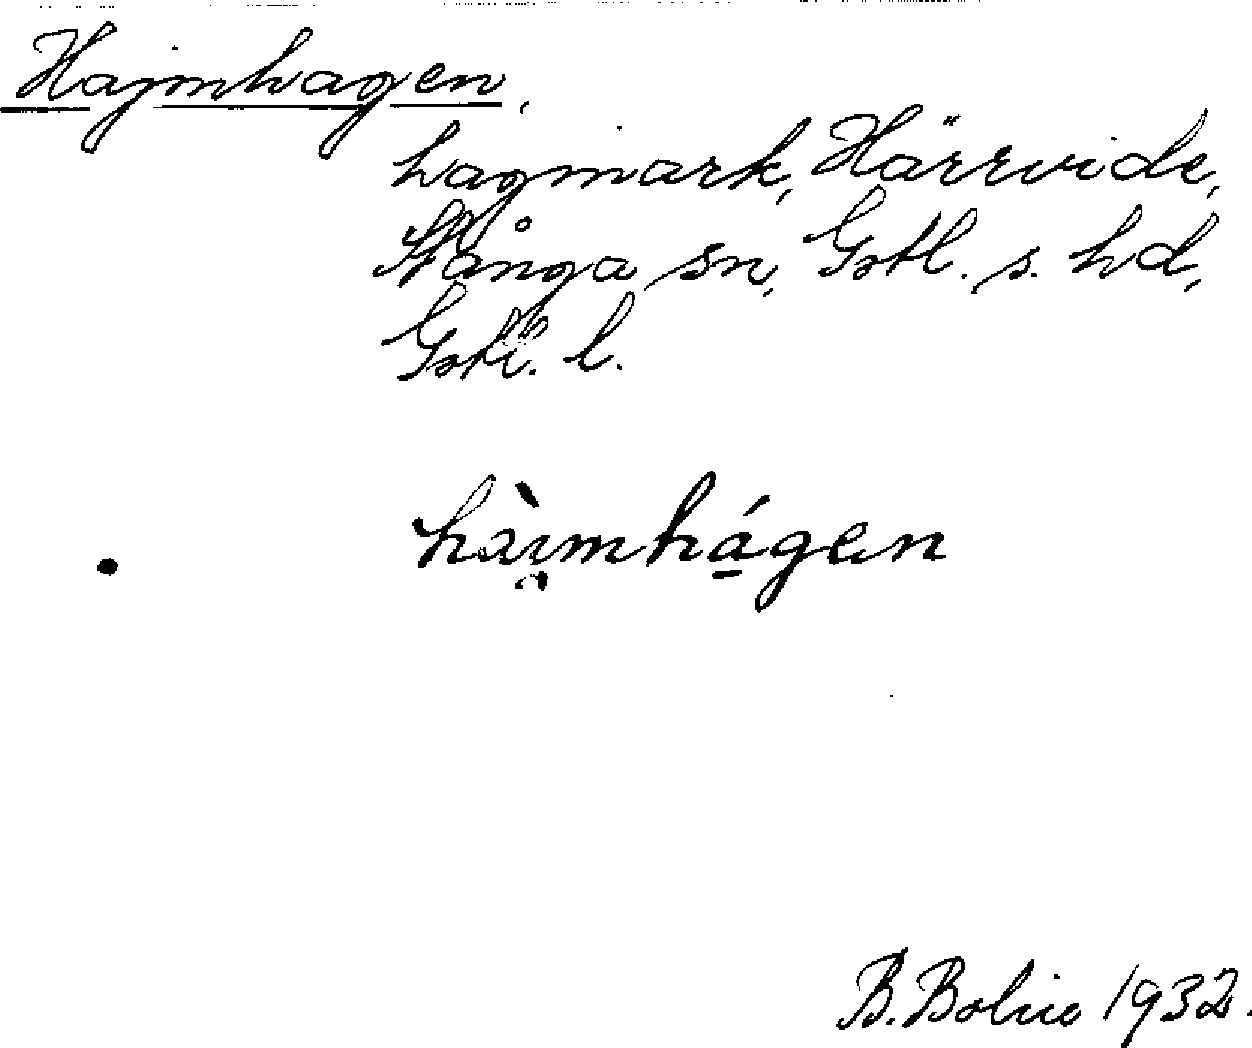 Hajmhagen,
hagmark, Härrvide,
Stånga sn, Gotl. s. hd,
Gotl. l.
hàımhágen
B. Bolin 1932.